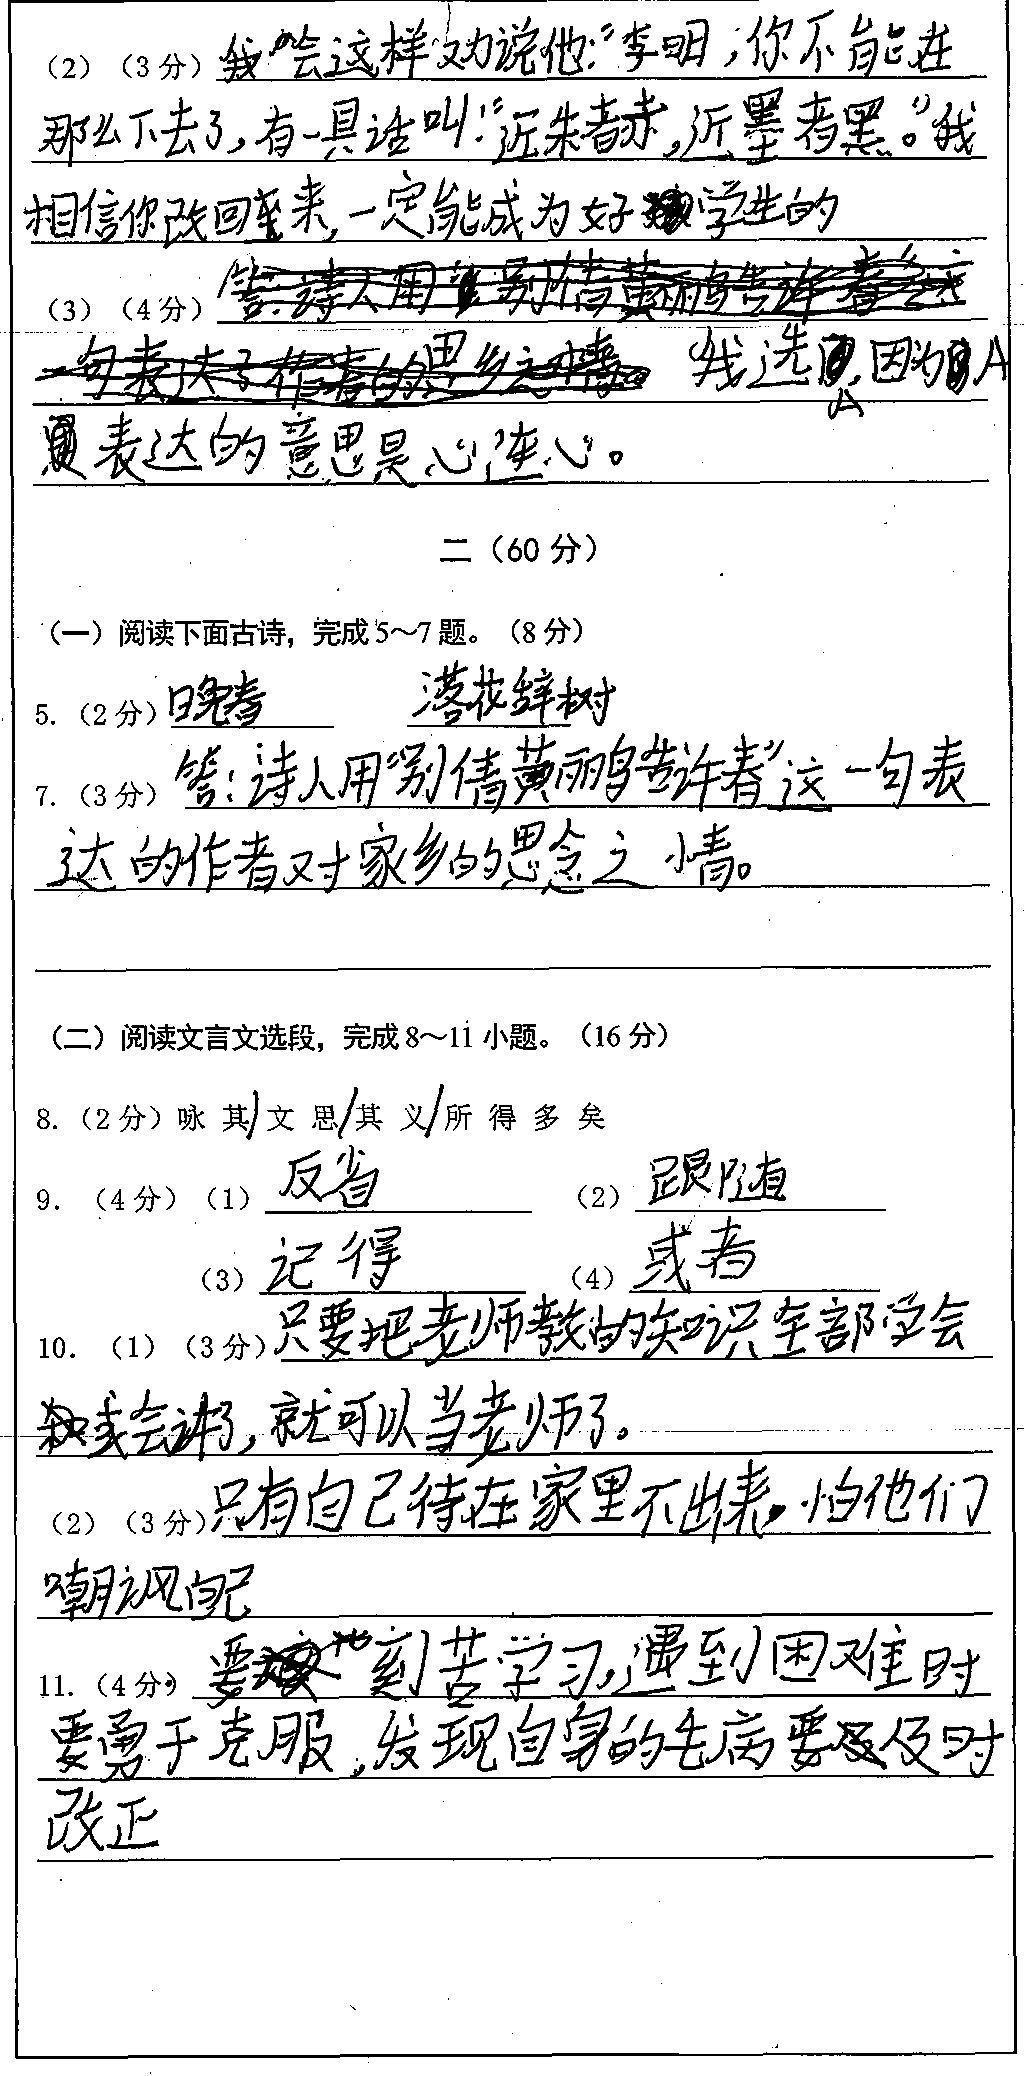 (2)(3分)我会这样劝说他:“李明,你不能在
那么下去了,有一具话叫:“近朱者赤,近墨者黑。”我
相信你改回来,一定能成为好学生的
(3)(4分)答:诗人用别倩黄鹂告许春这
一句表达了作者的思乡之情。 我选A,因为A
表达的意思是心连心。
二(60分)
(一)阅读下面古诗,完成5~7题。(8分)
5.(2分)晚春 落花辞树
7.(3分)答:诗人用“别倩黄鹂告许春”这一句表
达的作者对家乡的思念之情。
(二)阅读文言文选段,完成8~11小题。(16分)
8.(2分)咏其/文思/其义/所得多矣
9.(4分)(1)反省 (2)跟随
(3)记得 (4)或者
10.(1)(3分)只要把老师教的知识全部学会
会讲了,就可以当老师了。
(2)(3分)只有自己待在家里不出来,怕他们
嘲讽自己
11.(4分)要地刻苦学习,遇到困难时
要勇于克服,发现自身的毛病要及时
改正